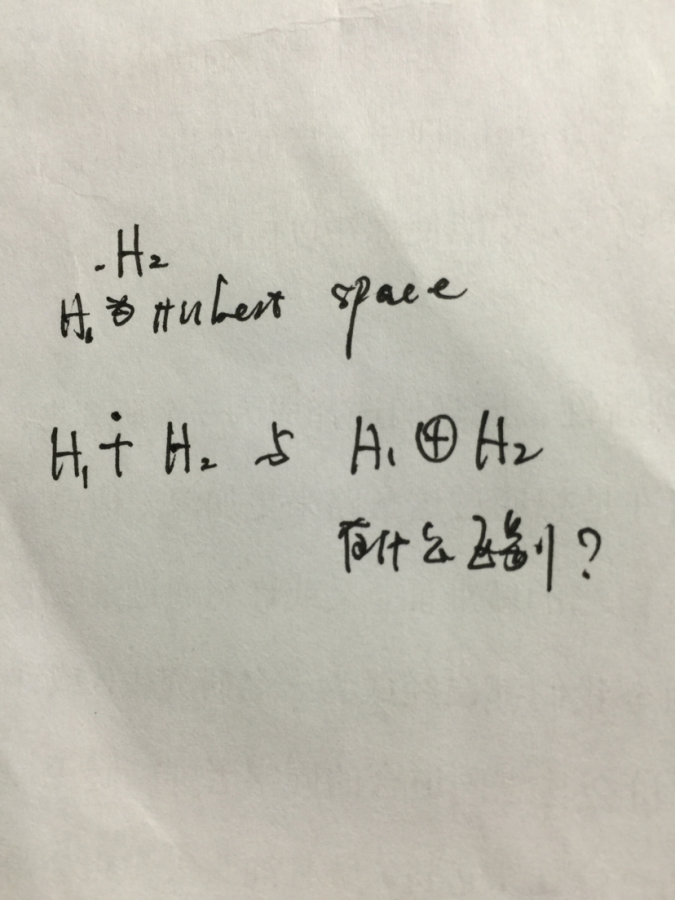 .H₂
H₁ 为 Hilbert space
H₁ ∔ H₂ 与 H₁ ⊕ H₂
有什么区别?